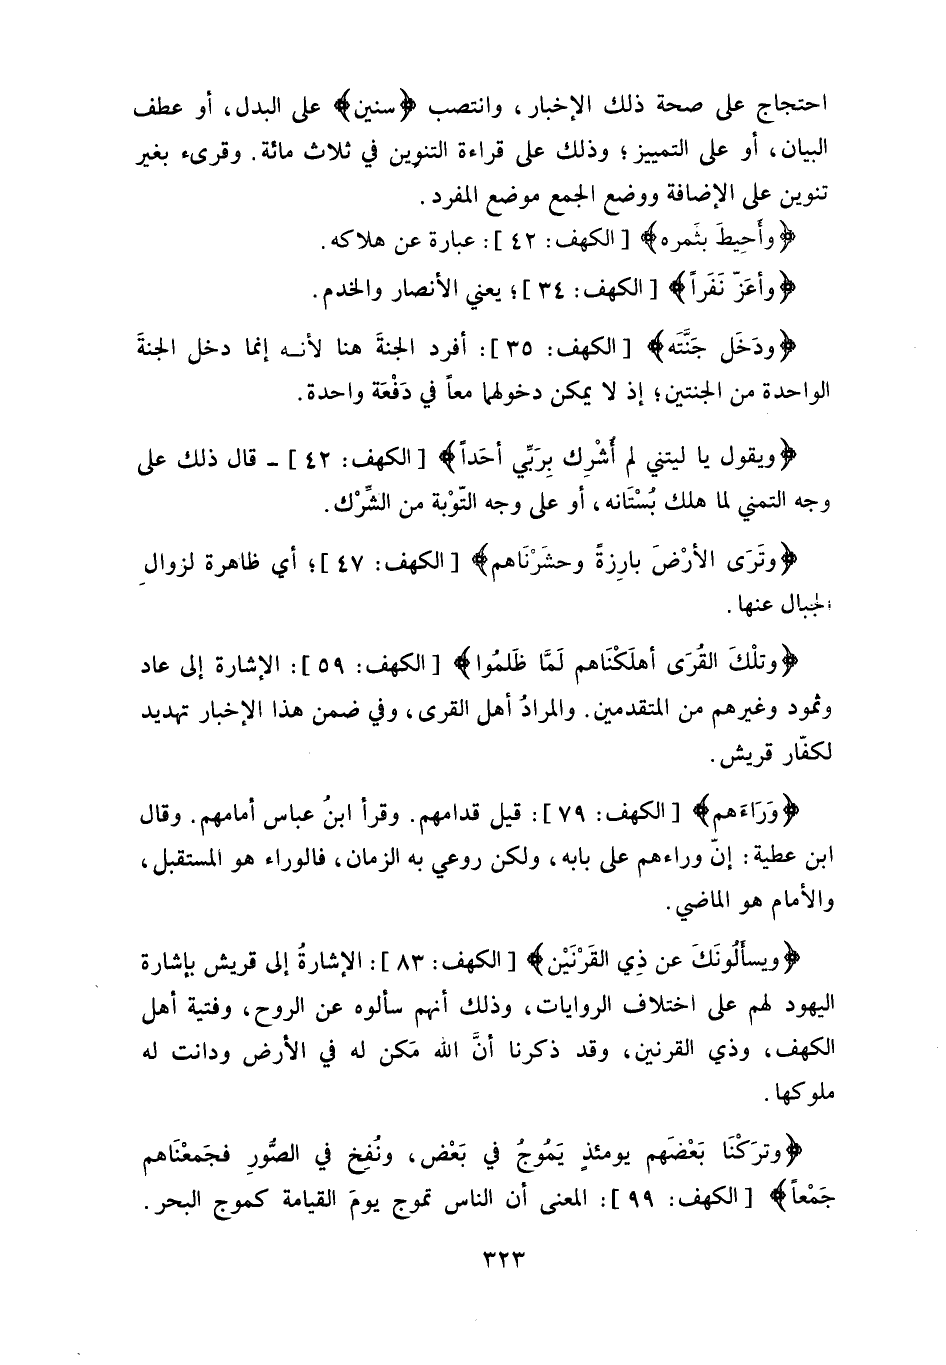 احتجاج على صحة ذلك الإخبار، وانتصب ﴿سنين﴾ على البدل، أو عطف
البيان، أو على التمييز؛ وذلك على قراءة التنوين في ثلاث مائة. وقرىء بغير
تنوين على الإضافة ووضع الجمع موضع المفرد.
﴿وأَحِيطَ بثَمره﴾ [الكهف: ٤٢]: عبارة عن هلاكه.
﴿وأعَزّ نَفَراً﴾ [الكهف: ٣٤]؛ يعني الأنصار والخدم.
﴿ودَخَل جَنَّتَه﴾ [الكهف: ٣٥]: أفرد الجنةَ هنا لأنه إنما دخل الجنةَ
الواحدة من الجنتين؛ إذ لا يمكن دخولهما معاً في دَفْعَة واحدة.
﴿ويقول يا ليتني لم أُشْرِك بِرَبِّي أحَداً﴾ [الكهف: ٤٢] - قال ذلك على
وجه التمني لما هلك بُسْتَانه، أو على وجه التّوْبة من الشِّرْك.
﴿وتَرَى الأرْضَ بارِزةً وحشَرْنَاهم﴾ [الكهف: ٤٧]؛ أي ظاهرة لزوالِ
الجبال عنها.
﴿وتلْكَ القُرَى أهلَكْنَاهم لَمَّا ظَلمُوا﴾ [الكهف: ٥٩]: الإشارة إلى عاد
وثمود وغيرهم من المتقدمين. والمرادُ أهل القرى، وفي ضمن هذا الإخبار تهديد
لكفّار قريش.
﴿وَرَاءَهم﴾ [الكهف: ٧٩]: قيل قدامهم. وقرأ ابنُ عباس أمامهم. وقال
ابن عطية: إنّ وراءهم على بابه، ولكن روعي به الزمان، فالوراء هو المستقبل،
والأمام هو الماضي.
﴿ويسأَلُونَكَ عن ذِي القَرْنَيْن﴾ [الكهف: ٨٣]: الإشارةُ إلى قريش بإشارة
اليهود لهم على اختلاف الروايات، وذلك أنهم سألوه عن الروح، وفتية أهل
الكهف، وذي القرنين، وقد ذكرنا أنَّ الله مَكن له في الأرض ودانت له
ملوكها.
﴿وتركْنَا بَعْضَهم يومئذٍ يَمُوجُ في بَعْض، ونُفِخ في الصُّورِ فجَمعْنَاهم
جَمْعاً﴾ [الكهف: ٩٩]: المعنى أن الناس تموج يومَ القيامة كموج البحر.
٣٢٣